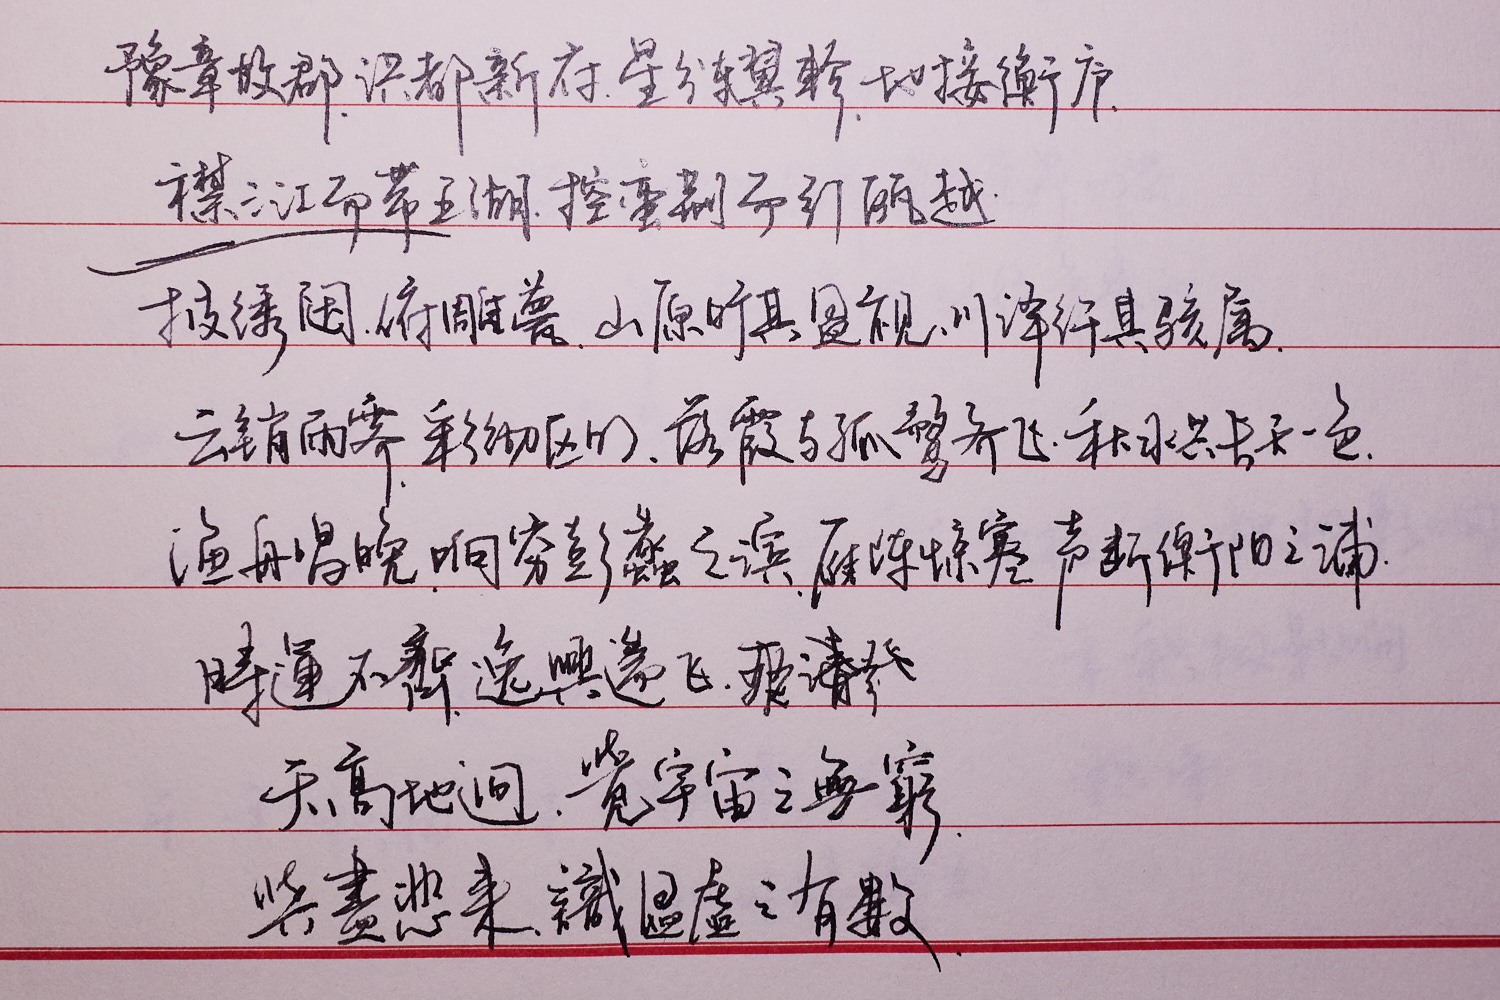 豫章故郡.洪都新府.星分翼轸.地接衡庐.
襟三江而带五湖.控蛮荆而引瓯越.
披绣闼.俯雕甍.山原旷其盈视.川泽纡其骇属.
云销雨霁.彩彻区明.落霞与孤鹜齐飞.秋水共长天一色.
渔舟唱晚.响穷彭蠡之滨.雁阵惊寒声断衡阳之浦.
時運不齊.逸興遄飞.爽籁發
天高地迥.覺宇宙之無窮.
興盡悲来.識盈虚之有数.